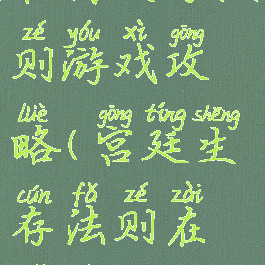 zé yóu xì gōng
则游戏攻
lüè gōng tíng shēng
略(宫廷生
cún fǎ zé zài
存法则在